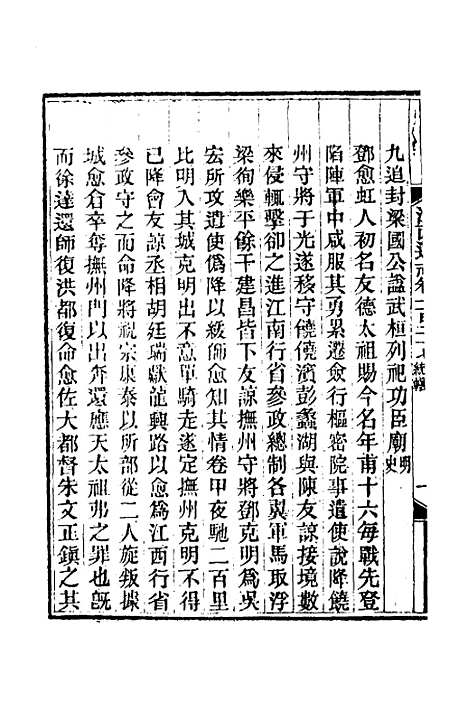 九追封梁國公諡武桓列祀功臣廟明史
鄧愈虹人初名友德太祖賜今名年甫十六每戰先登
陷陣軍中咸服其勇累遷僉行樞密院事遣使說降饒
州守將于光遂移守饒饒濱彭蠡湖與陳友諒接境數
來侵輒擊卻之進江南行省參政總制各翼軍馬取浮
梁徇樂平餘干建昌皆下友諒撫州守將鄧克明為吳
宏所攻遣使偽降以緩師愈知其情卷甲夜馳二百里
比明入其城克明出不意單騎走遂定撫州克明不得
已降會友諒丞相胡廷瑞獻龍興路以愈為江西行省
參政守之而命降將祝宗康泰以所部從二人旋叛據
城愈倉卒奪撫州門以出奔還應天太祖弗之罪也既
而徐達還師復洪都復命愈佐大都督朱文正鎮之其